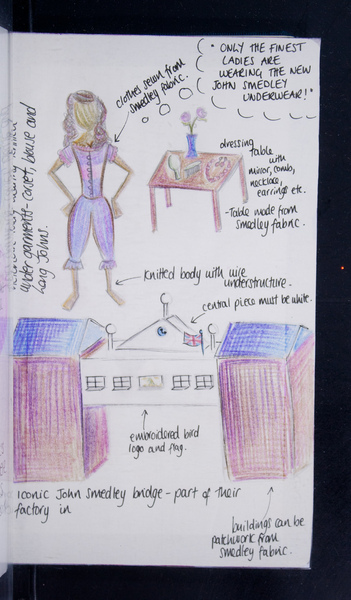 " ONLY THE FINEST
LADIES ARE
WEARING THE NEW
JOHN SMEDLEY
UNDERWEAR!"
clothes sewn from
Smedley fabric.
under garments - corset, blouse and
Long Johns.
dressing
table
with
mirror, comb,
necklace,
earrings etc.
- Table made from
Smedley fabric.
Knitted body with wire
understructure.
central piece must be white.
embroidered bird
logo and flag.
Iconic John Smedley bridge - part of their
factory in
buildings can be
patchwork from
Smedley fabric.